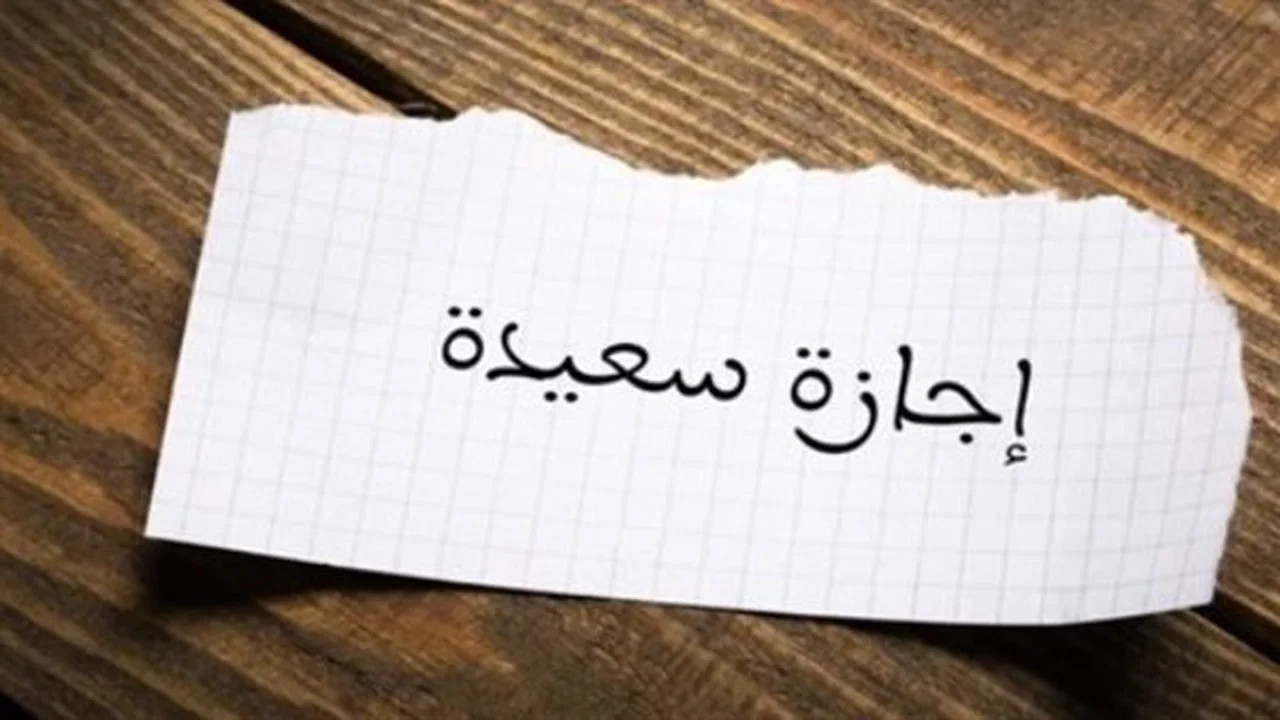 إجازة سعيدة